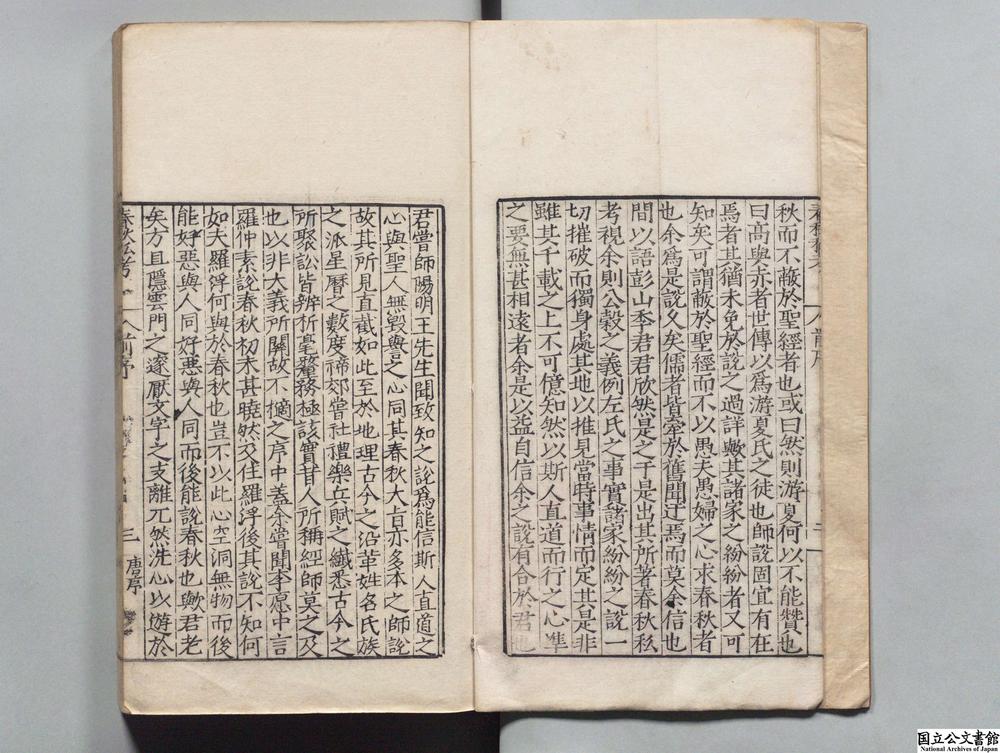 秋而不蔽於聖經者也或曰然則游夏何以不能贊也
曰高與赤者世傳以為游夏氏之徒也師說固宜有在
焉者其猶未免於說之過詳歟其諸家之紛紛者又可
知矣可謂蔽於聖經而不以愚夫愚婦之心求春秋者
也余為是說久矣儒者皆牽於舊聞迂焉而莫余信也
間以語彭山季君君欣然是之于是出其所著春秋私
考視余則公穀之義例左氏之事實諸家紛紛之說一
切摧破而獨身處其地以推見當時事情而定其是非
雖其千載之上不可億知然以斯人直道而行之心準
之要無甚相遠者余是以益自信余之說有合於君也
君嘗師陽明王先生聞致知之說為能信斯人直道之
心與聖人無毀譽之心同其春秋大㫖亦多本之師說
故其所見直截如此至於地理古今之沿革姓名氏族
之派星曆之數度禘郊嘗社禮樂兵賦之纖悉古今之
所聚訟皆辨析毫釐務極該實昔人所稱經師莫之及
也以非大義所關故不摘之序中蓋余嘗聞李愿中言
羅仲素說春秋初未甚曉然及住羅浮後其說不知何
如夫羅浮何與於春秋也豈不以此心空洞無物而後
能好惡與人同好惡與人同而後能說春秋也歟君老
矣方且隱雲門之邃厭文字之支離兀然洗心以遊於
春秋私考 前序 三 唐序
國立公文書館
National Archives of Japan